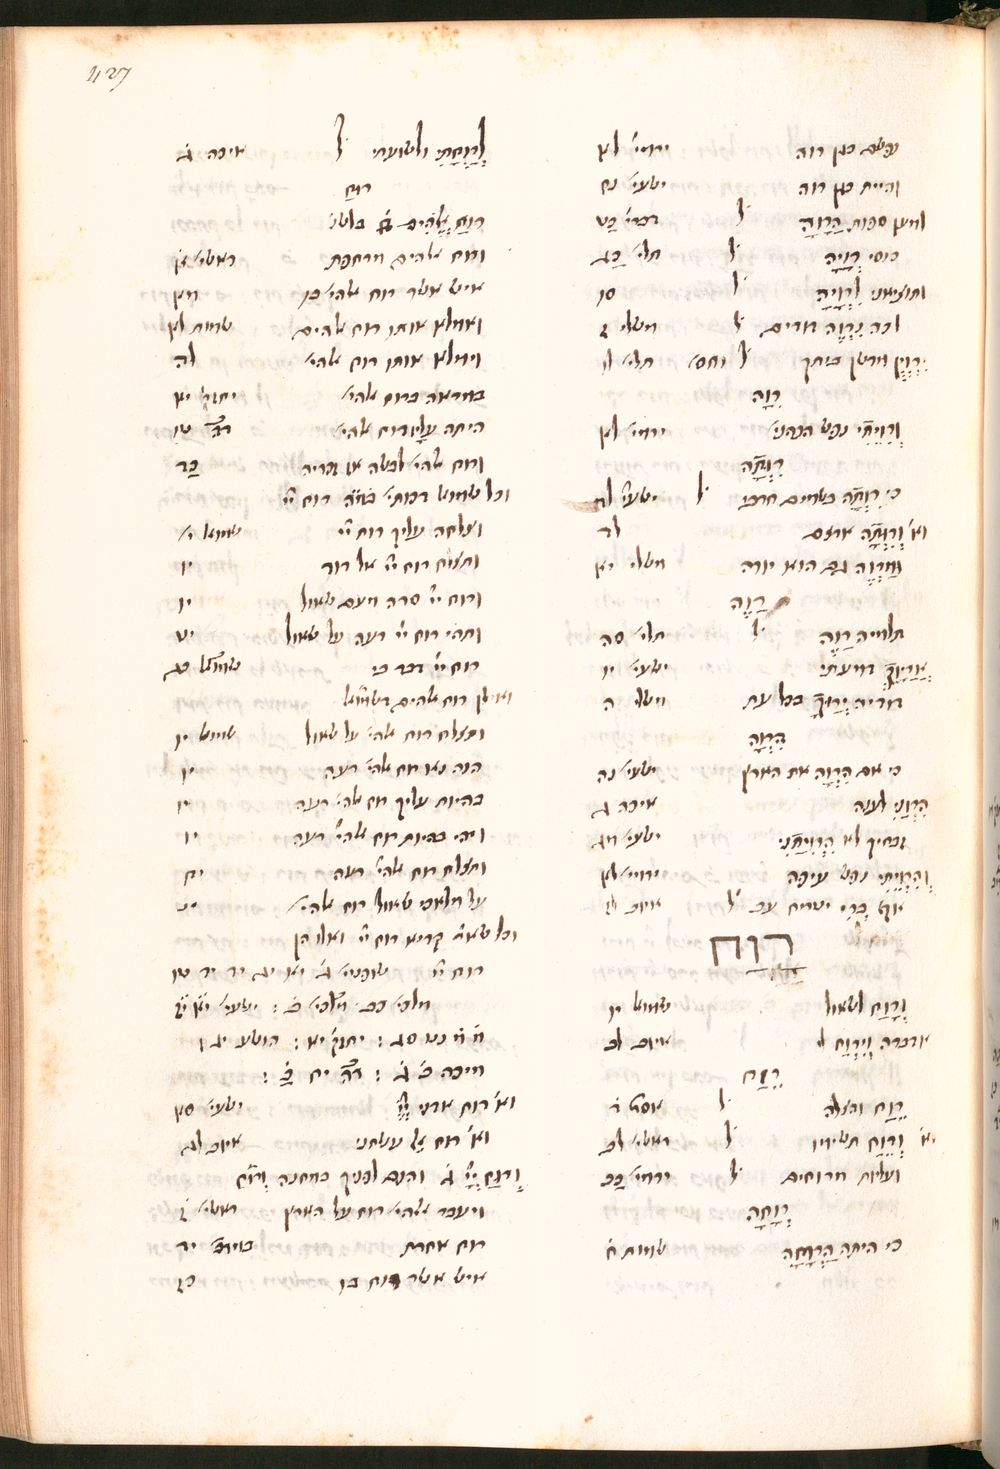 427
נפשם כגן רוה ירמי׳ לא
והיית כגן רוה ישעי׳ נח
למען ספות הָרָוָה ל׳ דברי׳ כט
כוסי רְוָיָה ל׳ תלי׳ כג
ותוציאנו לָרְוָיָה ל׳ סו
לכה נִרְוֶה דודים ל׳ משלי ז
יִרְוְיֻן מדשן ביתך ל׳ וחס׳ תלי׳ לו
רִוָּה
וְרִוֵּיתִי נפש הכהני׳ ירמי׳ לא
רִוְּתָה
כי רִוְּתָה בשמים חרבי ל׳ ישעי׳ לד
וא׳ וְרִוְּתָה ארצם לד
וּמַרְוֶה גם הוא יורה משלי יא
רַוֵּה
תלמיה רַוֵּה ל׳ תלי׳ סה
אֲרַיָּוֶךְ דמעתי ישעי׳ יו
דדיה יְרַוֻּךָ בכל עת משלי ה
הִרְוָה
כי אם הִרְוָה את הארץ ישעי׳ נה
הִרְוַנִי לענה איכה ג
זבחיך לא הִרְוִיתַנִי ישעי׳ מג
וְהִרְוֵיתִי נפש עיפה ירמי׳ לא
אף בְּרִי יטריח עב ל׳ איוב לז
רוח
וְרָוַח לשאול שמוא׳ יו
אדברה וְיִרְוַח לי איוב לב
רֶוַח
רֶוַח והצלה ל׳ אסתר ד
וא׳ וְרֶוַח תשימו ל׳ ראשי׳ לב
ועליות מרוחים ל׳ ירמי׳ כב
רְוָחָה
כי היתה הָרְוָחָה שמות ח
לְרַוְחָתִי ולשועתי ל׳ איכה ג
רוּחַ
רוּחַ אֱלֹהִים בלשני
ורוח אלהים מרחפת ראשי׳ א
איש אשר רוח אלהי׳ בו מא
ואמלא אותו רוח אלהים שמות לא
וימלא אותו רוח אלהי׳ לה
במראה ברוח אלהי׳ יחזק׳ יא
היתה עָלָיו רוח אלהי׳ טו
ורוח אלהי׳ לבשה את זכריה כד
וכל שמוא׳ דכותי׳ רוח יי׳
וצלחה עליך רוח יי׳ שמוא׳ י׳
ותצלח רוח יי׳ אל דוד יו
ורוח יי׳ סרה מעם שאול יו
ותהי רוח יי׳ רעה על שאול יט
רוח יי׳ דבר בי כג
ואילן רוח אלהים דשמוא׳
ותצלח רוח אלהי׳ על שאול שמוא׳ יו
הנה נא רוח אלהי׳ רעה יו
בהיות עליך רוח אלהי׳ רעה יו
ויהי בהיות רוח אלהי׳ רעה יו
ותצלח רוח אלהי׳ רעה יח
על מלאכי שאול רוח אלהי׳ יט
וכל שאר קריא רוח יי׳ ואלו הן
רוח יי׳ שופטי׳ ג׳ יא יג יד יד טו
מלכי׳ כב׳ מלכי׳ ב׳ : ישעי׳ יא יא
מ׳ מ׳ נט סג : יחזק׳ יא : הושע יג
מיכה ב׳ ג׳ : יח כ׳ :
וא׳ רוח אדני יי׳ ישעי׳ סא
וא׳ רוח אל עשתני איוב לג
ורוח יי׳ ג׳
ויעבר אלהי׳ רוח על הארץ ראשי׳ ז׳
רוח אחרת במדב׳ יד
איש אשר רוח בו כז